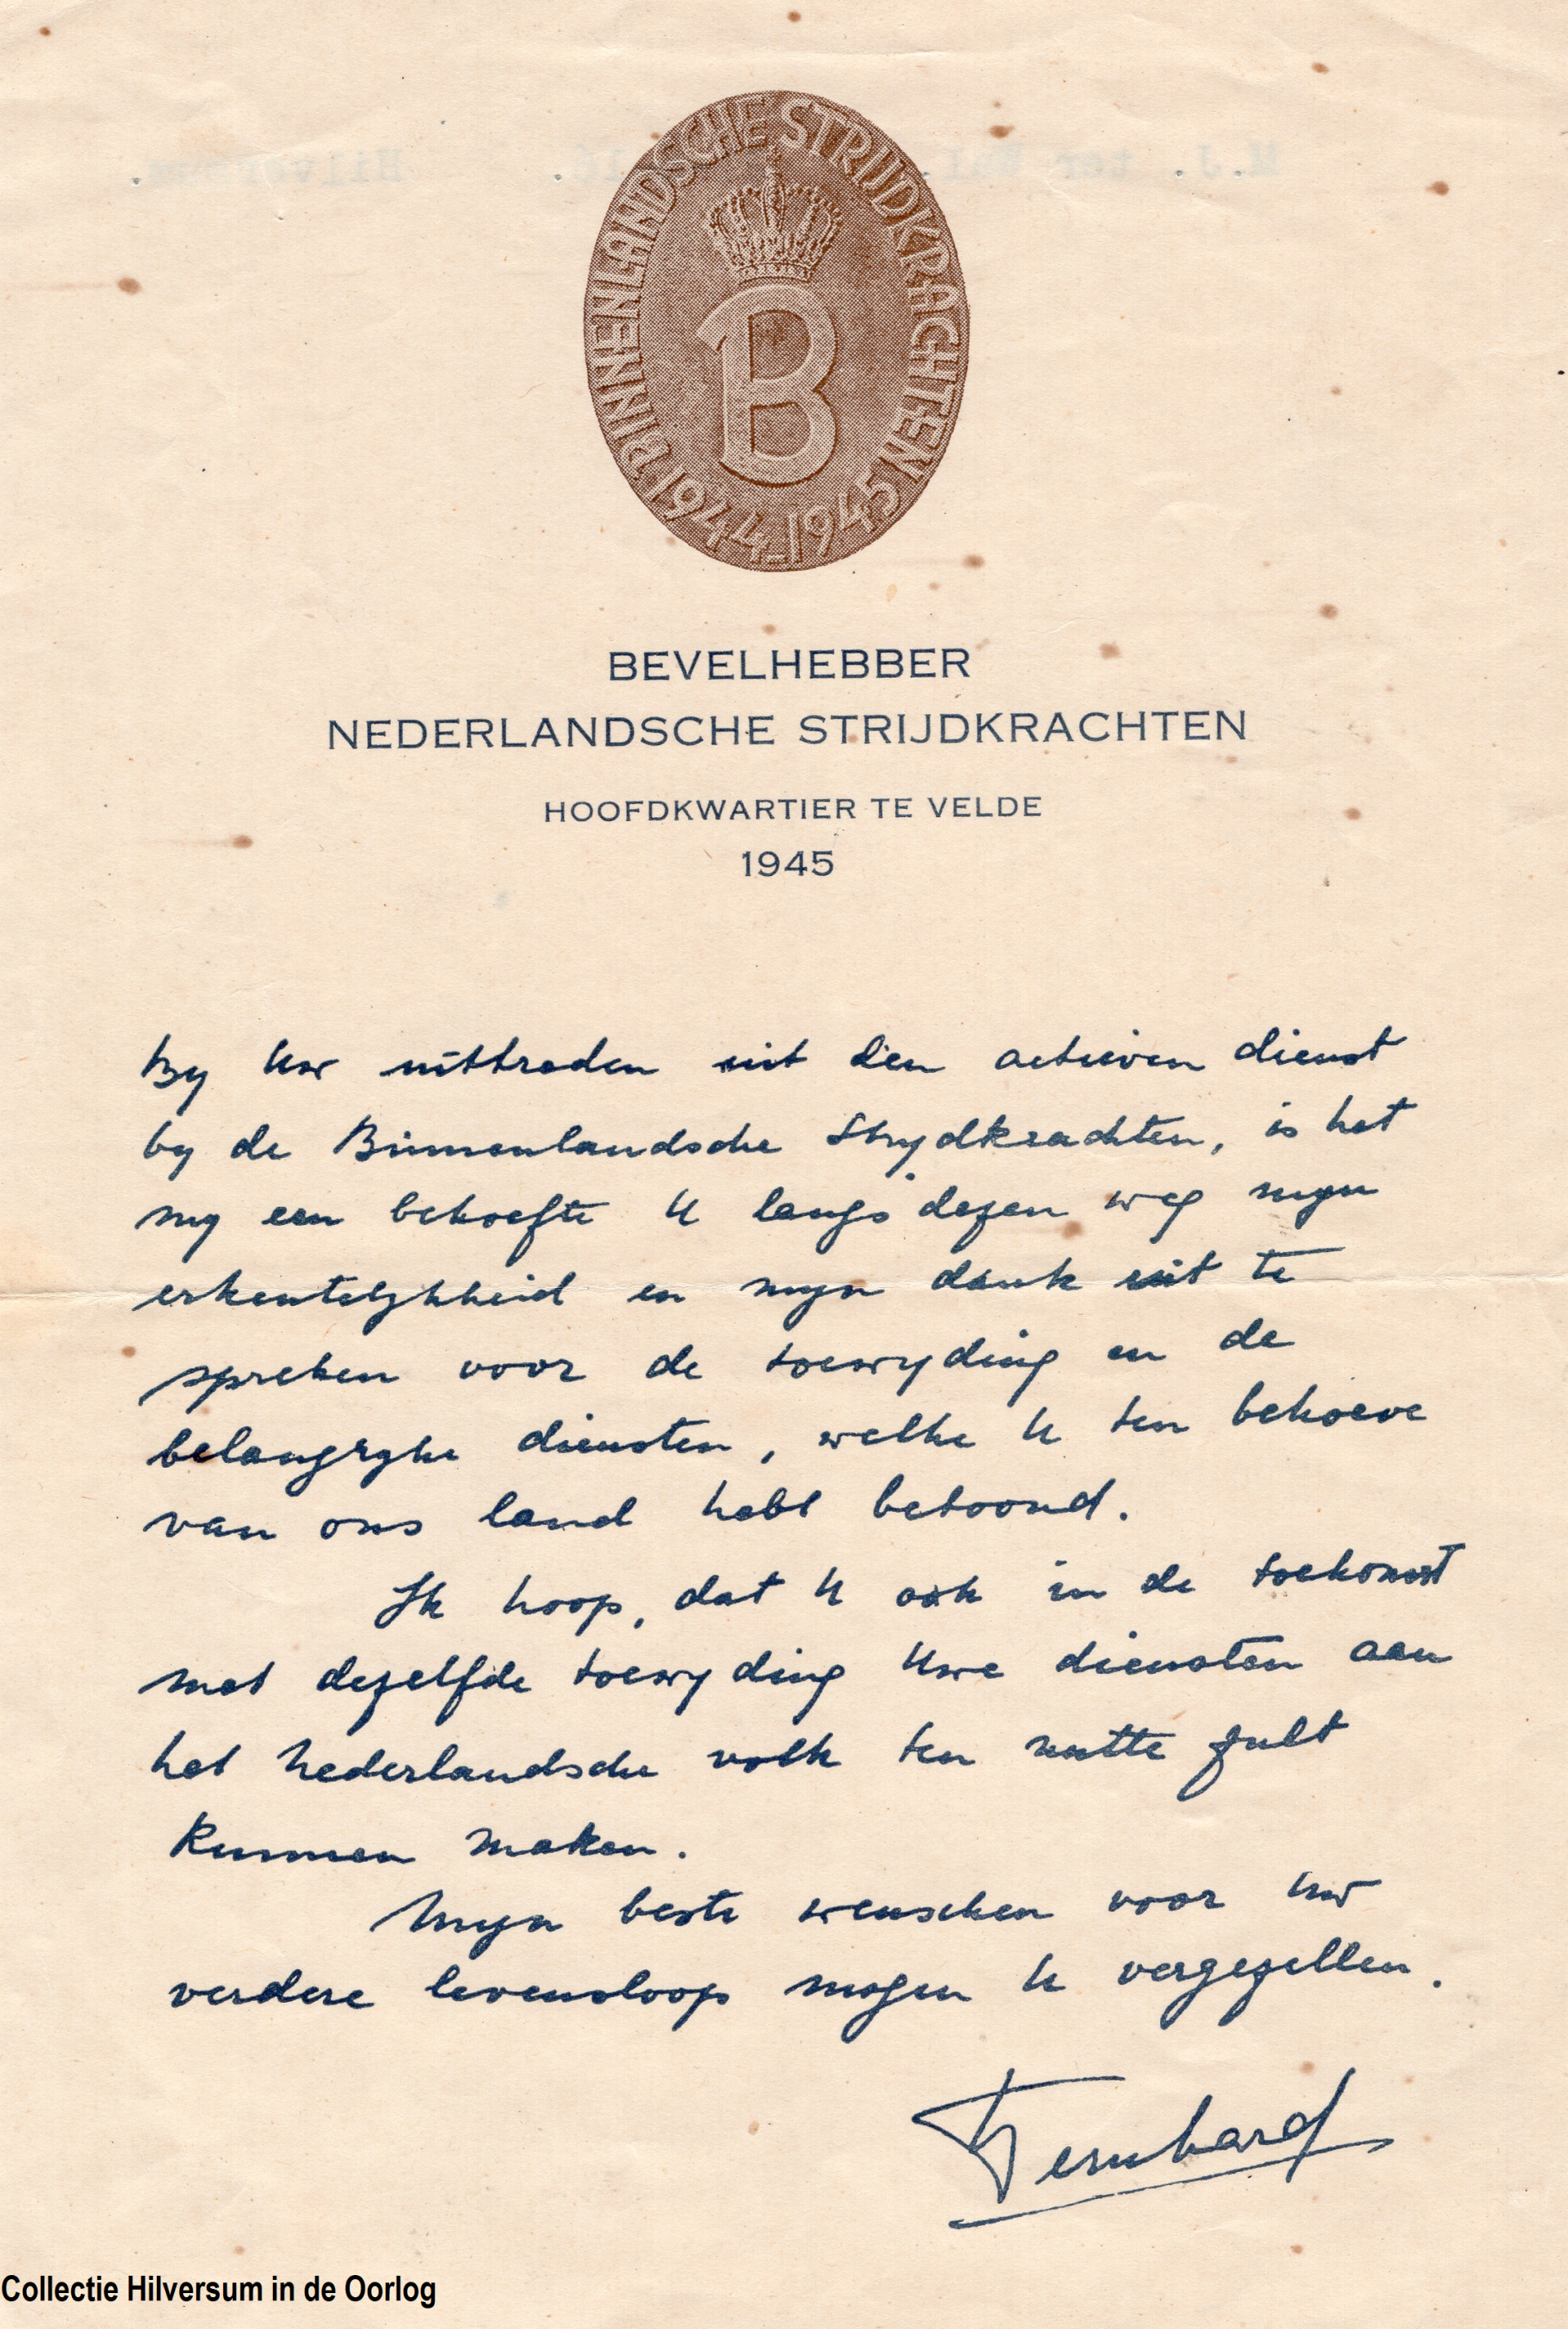 BINNENLANDSCHE STRIJDKRACHTEN
B
1944-1945
BEVELHEBBER
NEDERLANDSCHE STRIJDKRACHTEN
HOOFDKWARTIER TE VELDE
1945
By Uw uittreden uit den actieven dienst
by de Binnenlandsche Strydkrachten, is het
my een behoefte U langs dezen weg myn
erkentelykheid en myn dank uit te
spreken voor de toewyding en de
belangryke diensten, welke U ten behoeve
van ons land hebt betoond.
Ik hoop, dat U ook in de toekomst
met dezelfde toewyding Uwe diensten aan
het Nederlandsche volk ten nutte zult
kunnen maken.
Myn beste wenschen voor Uw
verdere levensloop mogen U vergezellen.
Bernhard
Collectie Hilversum in de Oorlog